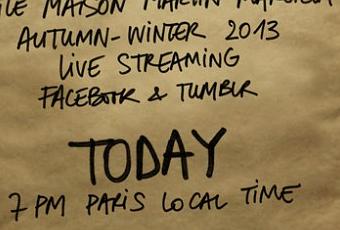 MAISON MARTIN MARGIELA
AUTUMN-WINTER 2013
LIVE STREAMING
FACEBOOK & TUMBLR
TODAY
7 PM PARIS LOCAL TIME